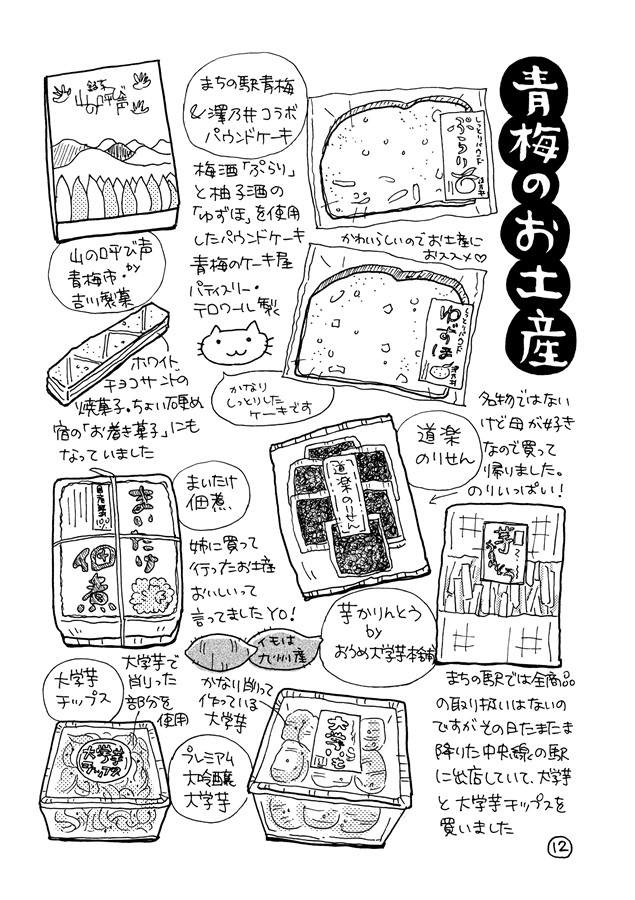 青梅のお土産
まちの駅青梅
&澤乃井コラボ
パウンドケーキ
しっとりパウンド
ぷらり
梅酒「ぷらり」
と柚子酒の
「ゆずほ」を使用
したパウンドケーキ
青梅のケーキ屋
パティスリー・
テロワール製
かわいらしいのでお土産に
おススメ♡
しっとりパウンド
ゆずほ
かなり
しっとりした
ケーキです
銘菓
山の呼び声
山の呼び声
青梅市・by
吉川製菓
ホワイト
チョコサンドの
焼菓子。ちょい硬め
宿の「お着き菓子」にも
なっていました
名物ではない
けど母が好き
なので買って
帰りました。
のりいっぱい!
道楽
のりせん
道楽のりせん
まいたけ
佃煮
まいたけ
佃煮
姉に買って
行ったお土産
おいしいって
言ってましたYO!
芋かりんとう
芋かりんとう
by
おうめ大学芋本舗
いもは
九州産
大学芋
チップス
大学芋で
削った
部分を
使用
大学芋
チップス
かなり削って
作っている
大学芋
プレミアム
大吟醸
大学芋
大学いも
まちの駅では全商品
の取り扱いはないの
ですがその日たまたま
降りた中央線の駅
に出店していて、大学芋
と大学芋チップスを
買いました
12